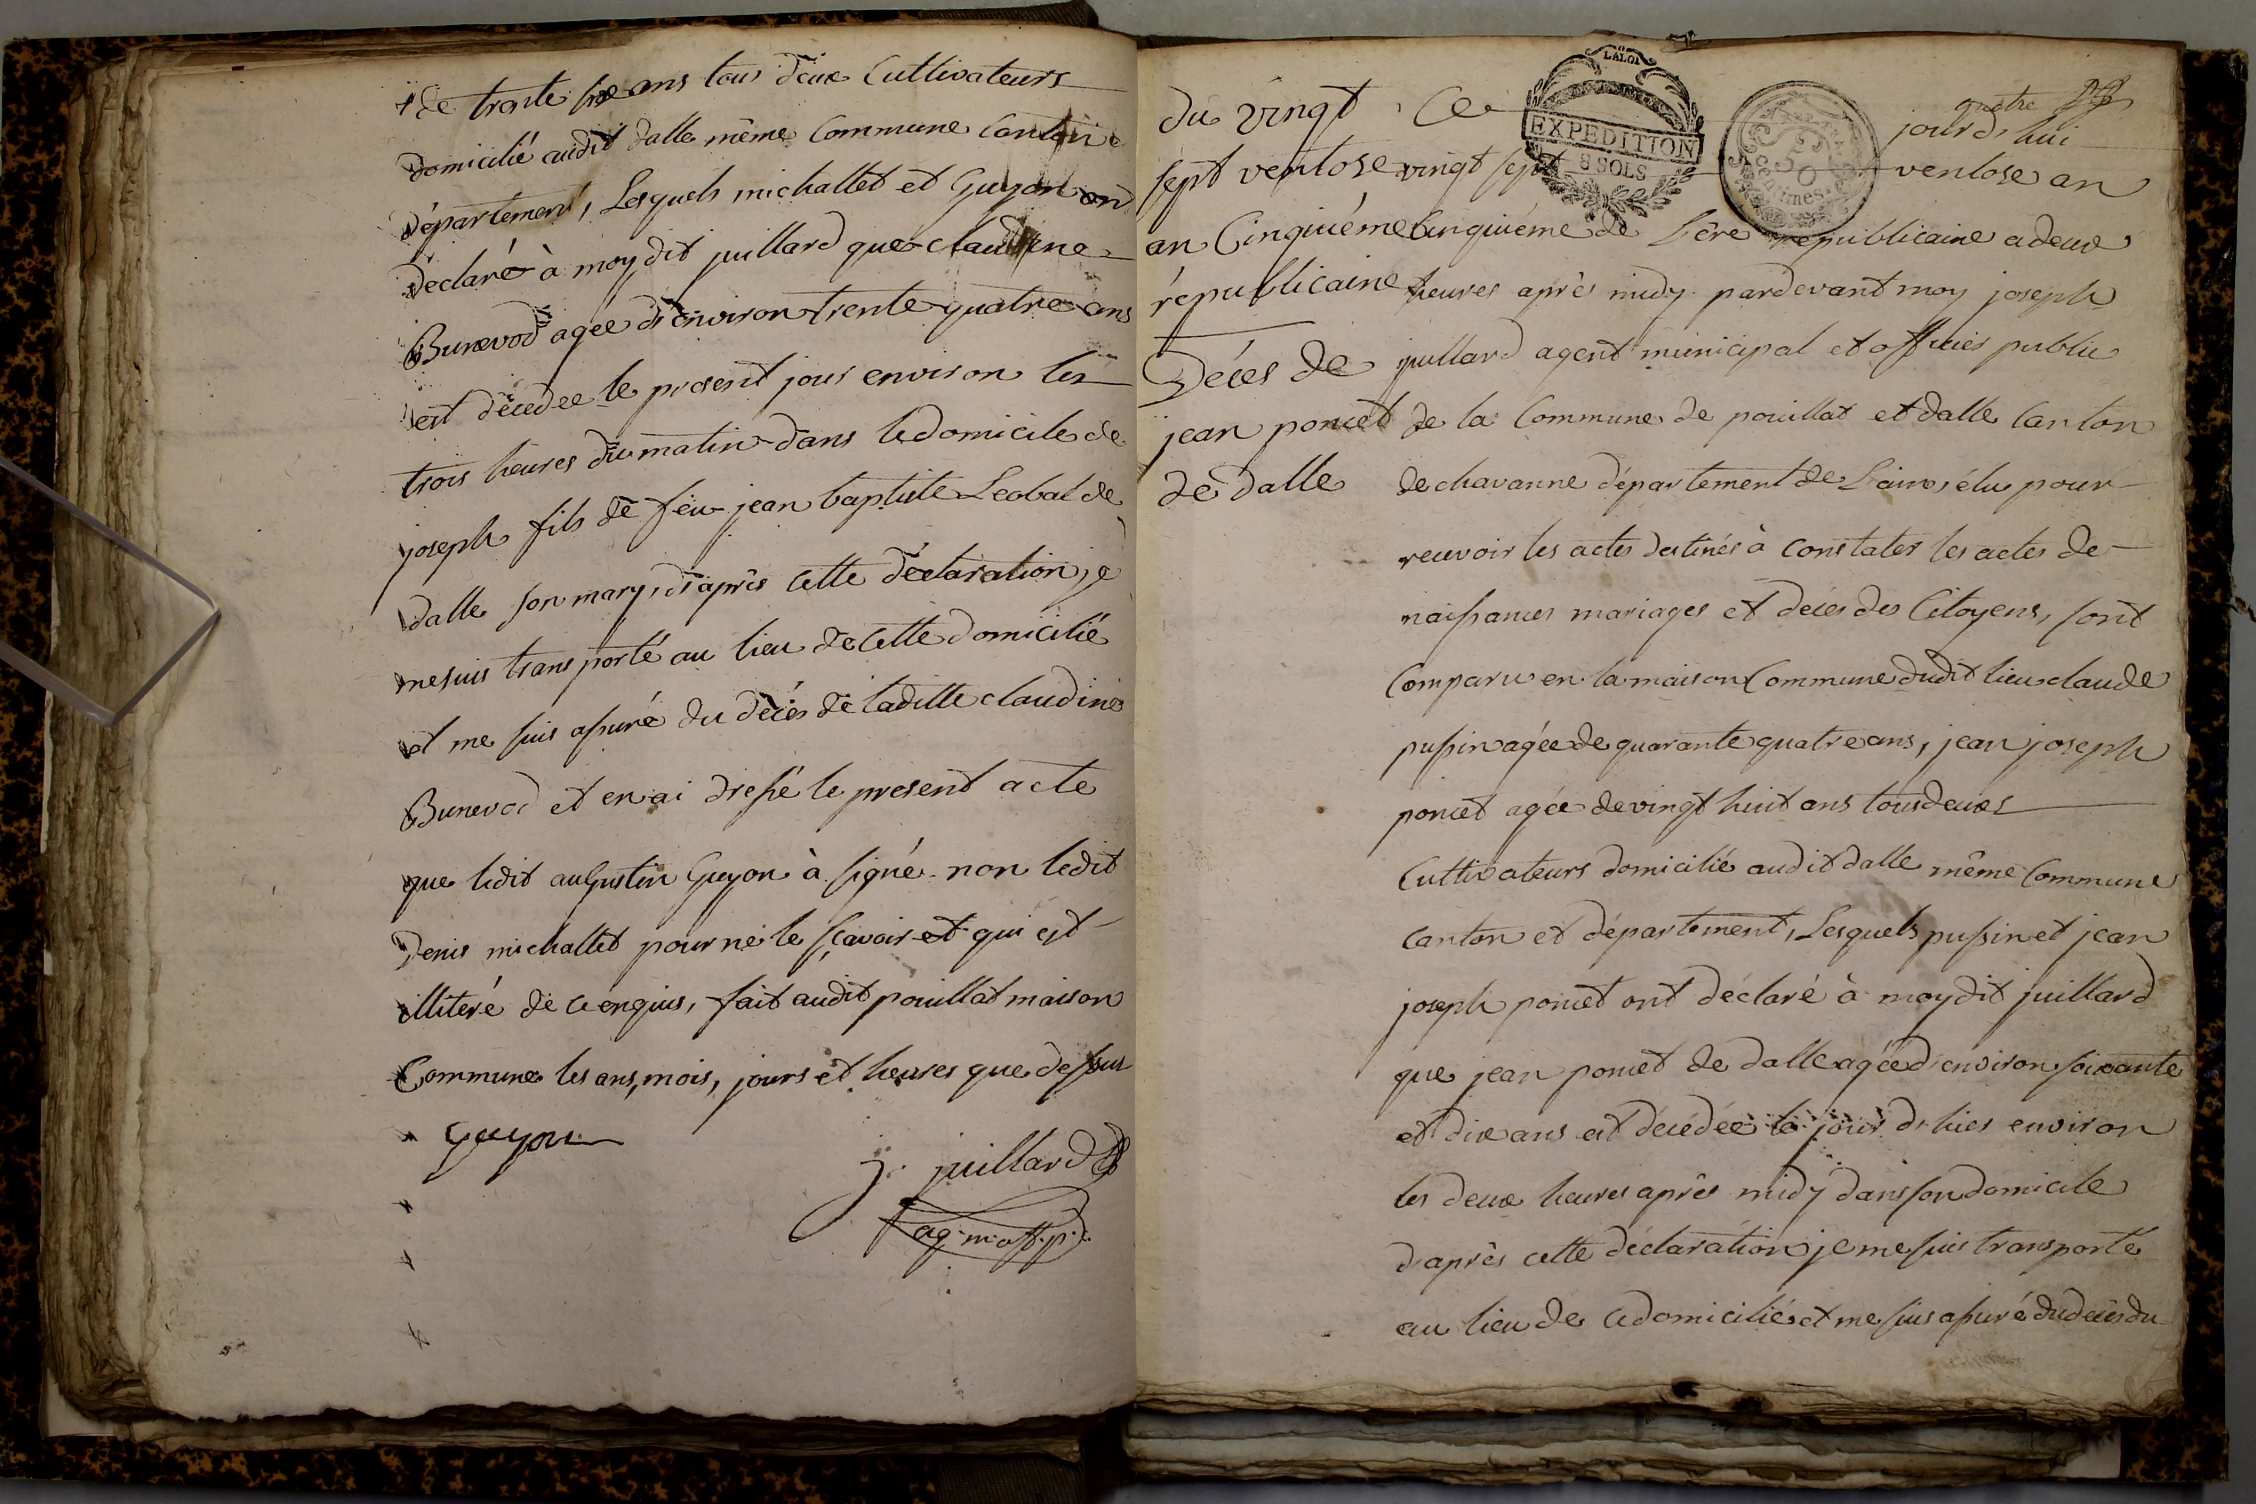 de trente six ans tous deux Cultivateurs
domicilié audit dalle même Commune Canton
département, Lesquels michallet et Guyon ont
declaré à moy dit juillard que claudine
Bunevod agée d'environ trente quatre ans
est décedee le present jour environ les
trois heures du matin dans le domicile de
joseph fils de feu jean baptiste Leobal de
dalle son mary, d'après cette déclaration je
me suis transporté au lieu de cette domicilié
et me suis assuré du décés de laditte claudine
Bunevod et en ai dressé le present acte
que ledit augustin Guyon à signé non ledit
Denis michallet pour ne le sçavoir et qui est
illiteré de ce enquis, fait audit pouillat maison
Commune les ans, mois, jours et heures que dessus
Guyon
J. juillard
ag. m. off. p.
quatre
LA LOI
EXPEDITION
8 SOLS
50
Centimes
du vingt
sept ventose
an Cinquiéme
républicaine
Décés de
jean poncet
de dalle
Ce jourd'hui
vingt sept ventose an
Cinquiéme de L'ère republicaine a deux
heures après midy pardevant moy joseph
juillard agent municipal et officier public
de la Commune de pouillat et dalle Canton
de chavanne département de L'ain, élu pour
recevoir les actes destinés à constater les actes de
naissances mariages et décés des Citoyens, sont
Comparu en la maison Commune dudit lieu claude
pussin agée de quarante quatre ans, jean joseph
poncet agée de vingt huit ans tous deux
Cultivateurs domicilié audit dalle même Commune
Canton et département, Lesquels pussin et jean
joseph poncet ont déclaré à moy dit juillard
que jean poncet de dalle agée d'environ soixante
et dix ans est décédée le jour d'hier environ
les deux heures après midy dans son domicile
d'après cette déclaration je me suis transporté
au lieu de ce domicilié et me suis assuré du decés du